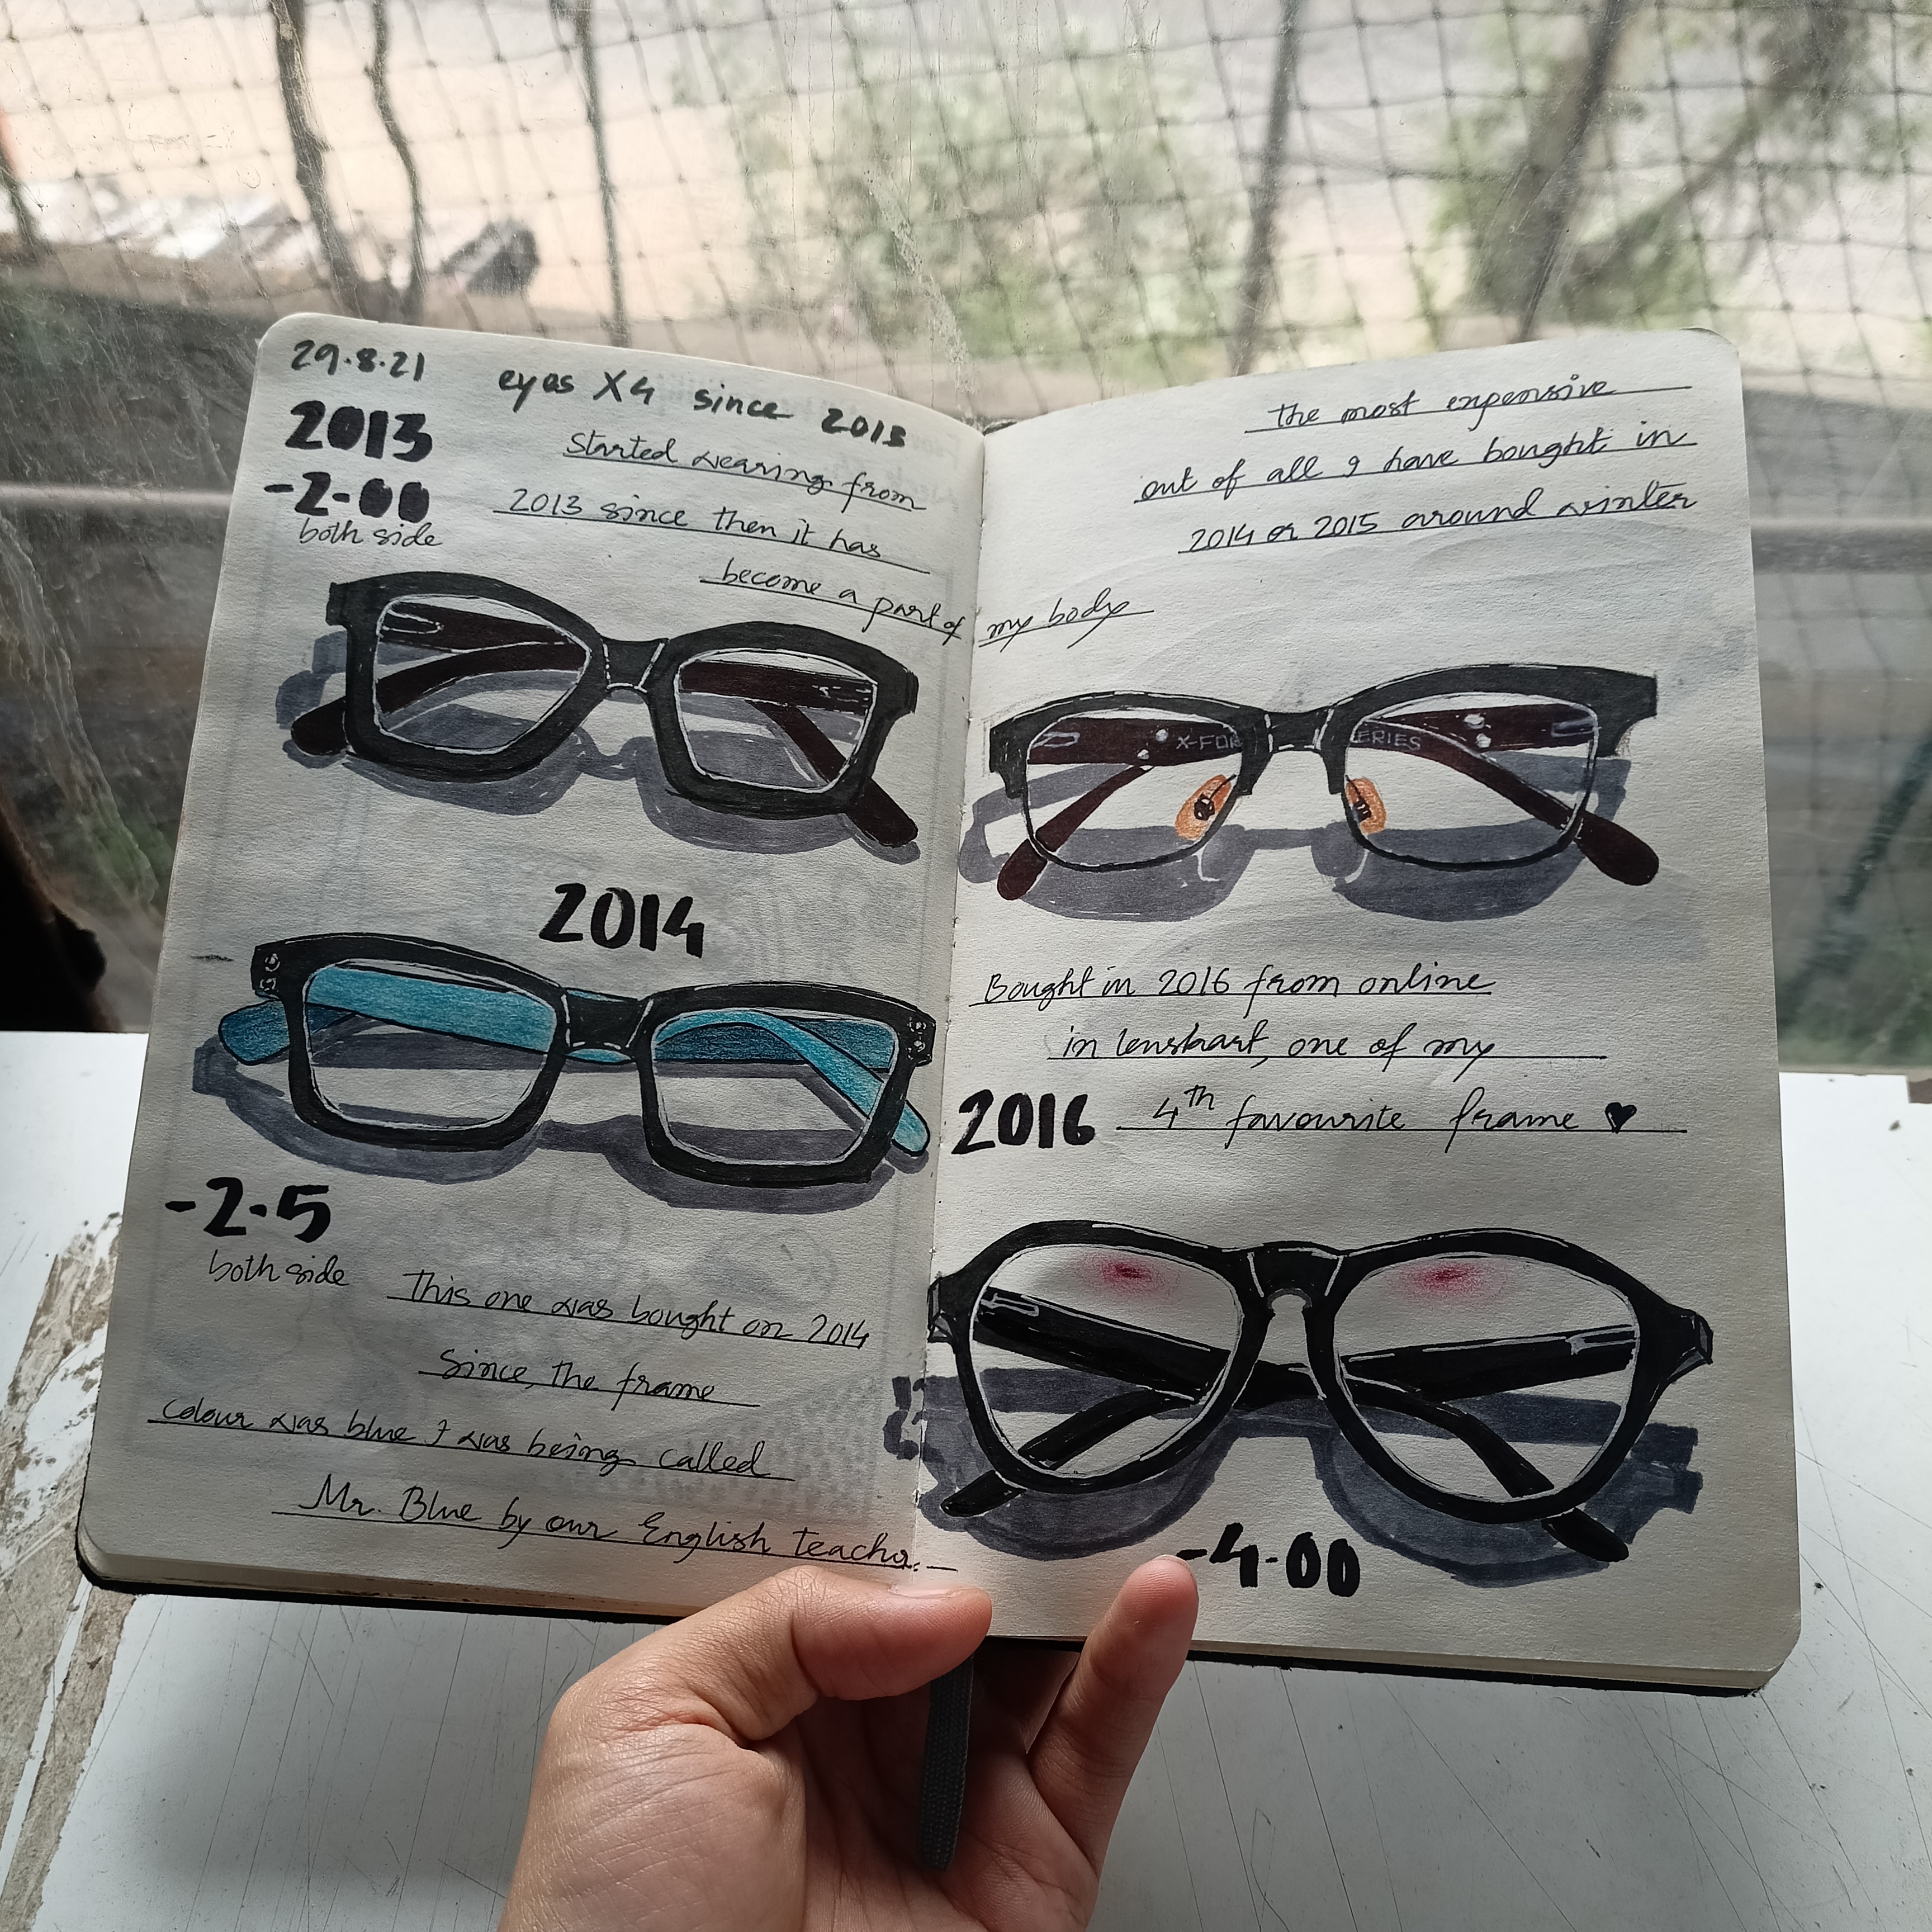 29.8.21
eyes X4 since 2013
2013
-2.00
both side
Started wearing from
2013 since then it has
become a part of my body
2014
-2.5
both side
This one was bought on 2014
Since, the frame
colour was blue I was being called
Mr. Blue by our English teacher.
the most expensive
out of all I have bought in
2014 or 2015 around winter
X-FOR ERIES
Bought in 2016 from online
in lenskart, one of my
2016 4th favourite frame ♥
-4.00